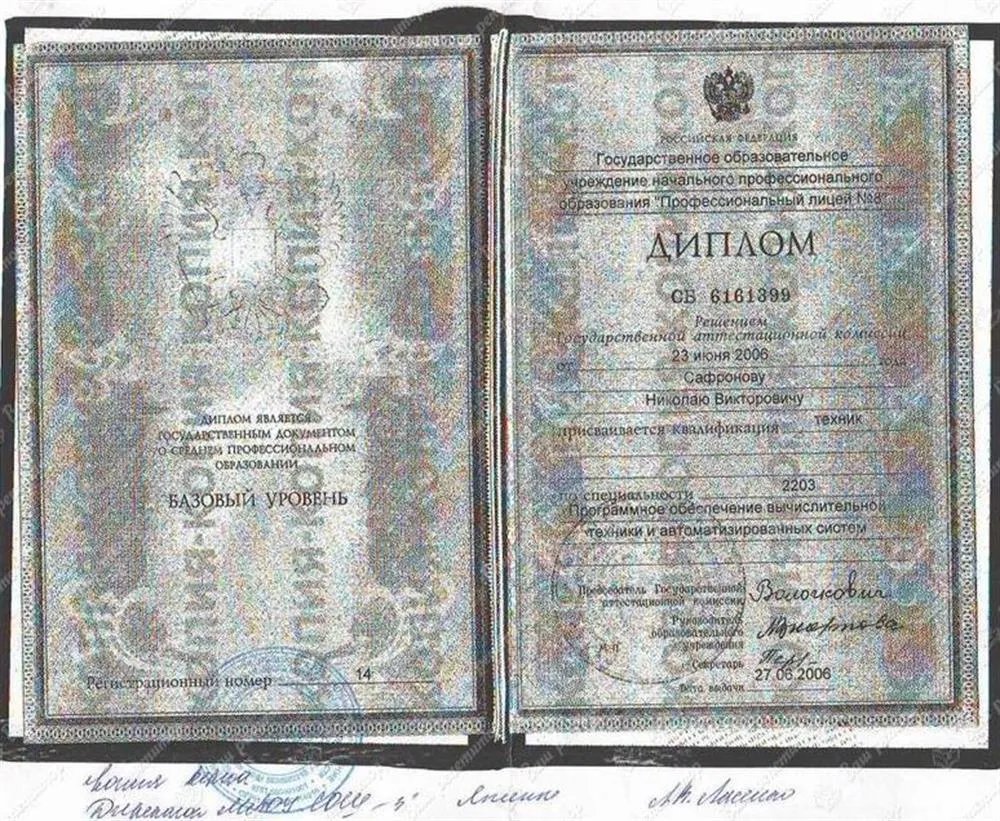 ДИПЛОМ ЯВЛЯЕТСЯ
ГОСУДАРСТВЕННЫМ ДОКУМЕНТОМ
О СРЕДНЕМ ПРОФЕССИОНАЛЬНОМ
ОБРАЗОВАНИИ
БАЗОВЫЙ УРОВЕНЬ
Регистрационный номер 14
РОССИЙСКАЯ ФЕДЕРАЦИЯ
Государственное образовательное
учреждение начального профессионального
образования "Профессиональный лицей №8"
ДИПЛОМ
СБ 6161399
Решением
Государственной аттестационной комиссии
от 23 июня 2006 года
Сафронову
Николаю Викторовичу
присваивается квалификация техник
по специальности 2203
Программное обеспечение вычислительной
техники и автоматизированных систем
Председатель Государственной
аттестационной комиссии Волочкович
Руководитель
образовательного
учреждения
М.П.
Секретарь
27.06.2006
Дата выдачи
копия верна
Директор